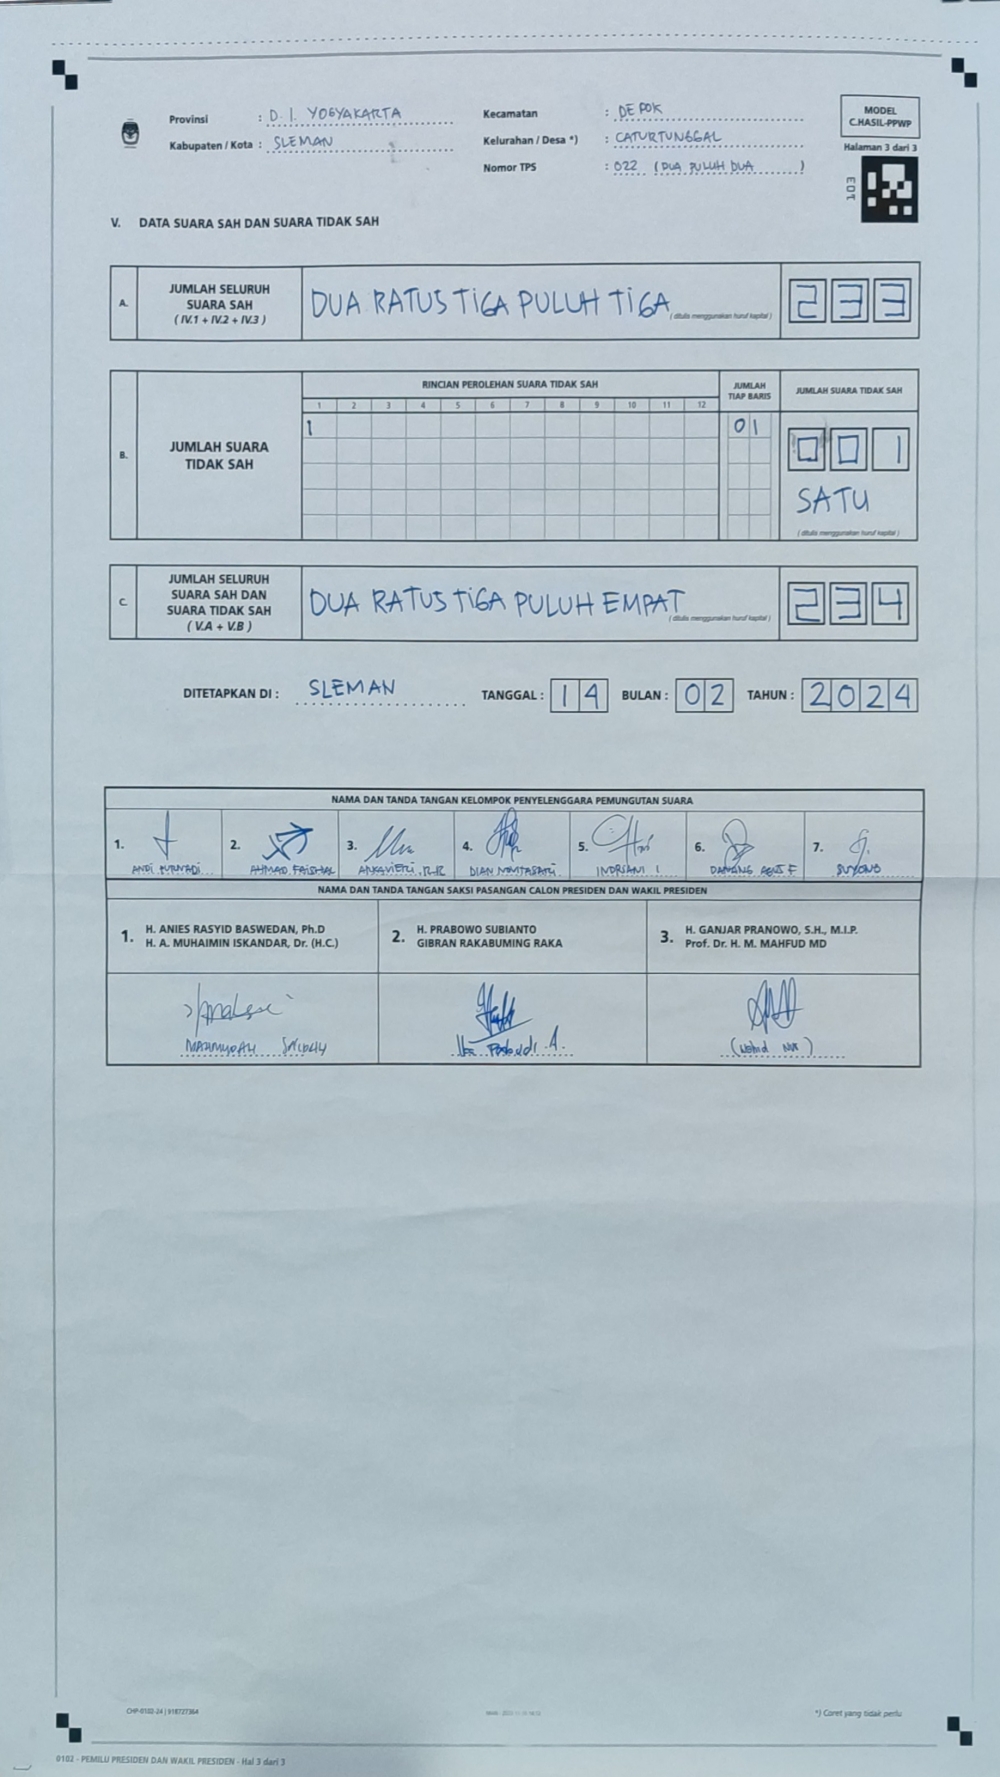 Provinsi : D. I. YOGYAKARTA
Kabupaten / Kota : SLEMAN
Kecamatan : DEPOK
Kelurahan / Desa *) : CATURTUNGGAL
Nomor TPS : 022 (DUA PULUH DUA)
MODEL
C.HASIL-PPWP
Halaman 3 dari 3
103
V. DATA SUARA SAH DAN SUARA TIDAK SAH
A. JUMLAH SELURUH
SUARA SAH
( IV.1 + IV.2 + IV.3 )
DUA RATUS TIGA PULUH TIGA
( ditulis menggunakan huruf kapital )
233
B. JUMLAH SUARA
TIDAK SAH
RINCIAN PEROLEHAN SUARA TIDAK SAH
1 2 3 4 5 6 7 8 9 10 11 12
JUMLAH
TIAP BARIS
01
JUMLAH SUARA TIDAK SAH
001
SATU
( ditulis menggunakan huruf kapital )
C. JUMLAH SELURUH
SUARA SAH DAN
SUARA TIDAK SAH
( V.A + V.B )
DUA RATUS TIGA PULUH EMPAT
( ditulis menggunakan huruf kapital )
234
DITETAPKAN DI : SLEMAN TANGGAL : 14 BULAN : 02 TAHUN : 2024
NAMA DAN TANDA TANGAN KELOMPOK PENYELENGGARA PEMUNGUTAN SUARA
1. 2. 3. 4. 5. 6. 7.
AHMAD FAISHAL DIAN NOVITASARI INDRIANI I DANANG AGUS F SUYONO
NAMA DAN TANDA TANGAN SAKSI PASANGAN CALON PRESIDEN DAN WAKIL PRESIDEN
1. H. ANIES RASYID BASWEDAN, Ph.D
H. A. MUHAIMIN ISKANDAR, Dr. (H.C.)
2. H. PRABOWO SUBIANTO
GIBRAN RAKABUMING RAKA
3. H. GANJAR PRANOWO, S.H., M.I.P.
Prof. Dr. H. M. MAHFUD MD
CHP-0102-24 | 918727364
*) Coret yang tidak perlu
0102 - PEMILU PRESIDEN DAN WAKIL PRESIDEN - Hal 3 dari 3